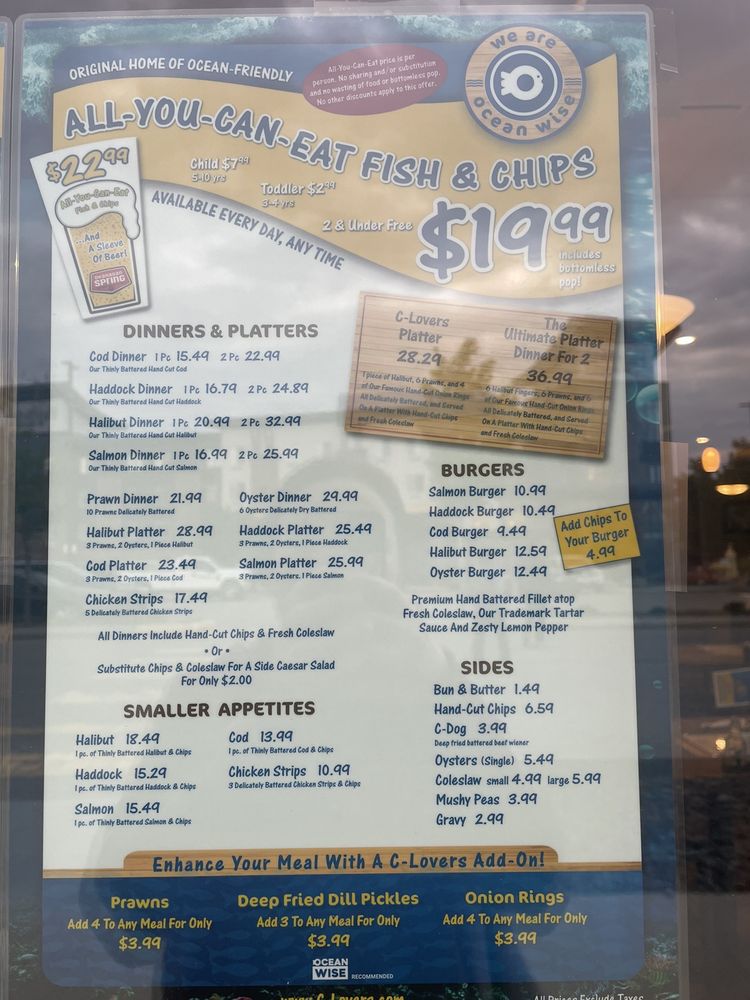 ORIGINAL HOME OF OCEAN-FRIENDLY
All-You-Can-Eat price is per
person. No sharing and/or substitution
and no wasting of food or bottomless pop.
No other discounts apply to this offer.
we are
ocean wise
ALL-YOU-CAN-EAT FISH & CHIPS
$22.99
All-You-Can-Eat
Fish & Chips
...And
A Sleeve
Of Beer!
OKANAGAN
SPRING
Child $7.99
5-10 yrs
Toddler $2.99
3-4 yrs
2 & Under Free
AVAILABLE EVERY DAY, ANY TIME
$19.99
includes
bottomless
pop!
DINNERS & PLATTERS
Cod Dinner 1 Pc 15.49 2 Pc 22.99
Our Thinly Battered Hand Cut Cod
Haddock Dinner 1 Pc 16.79 2 Pc 24.89
Our Thinly Battered Hand Cut Haddock
Halibut Dinner 1 Pc 20.99 2 Pc 32.99
Our Thinly Battered Hand Cut Halibut
Salmon Dinner 1 Pc 16.99 2 Pc 25.99
Our Thinly Battered Hand Cut Salmon
Prawn Dinner 21.99
10 Prawns Delicately Battered
Oyster Dinner 29.99
6 Oysters Delicately Dry Battered
Halibut Platter 28.99
3 Prawns, 2 Oysters, 1 Piece Halibut
Haddock Platter 25.49
3 Prawns, 2 Oysters, 1 Piece Haddock
Cod Platter 23.49
3 Prawns, 2 Oysters, 1 Piece Cod
Salmon Platter 25.99
3 Prawns, 2 Oysters, 1 Piece Salmon
Chicken Strips 17.49
5 Delicately Battered Chicken Strips
All Dinners Include Hand-Cut Chips & Fresh Coleslaw
• Or •
Substitute Chips & Coleslaw For A Side Caesar Salad
For Only $2.00
SMALLER APPETITES
Halibut 18.49
1 pc. of Thinly Battered Halibut & Chips
Cod 13.99
1 pc. of Thinly Battered Cod & Chips
Haddock 15.29
1 pc. of Thinly Battered Haddock & Chips
Chicken Strips 10.99
3 Delicately Battered Chicken Strips & Chips
Salmon 15.49
1 pc. of Thinly Battered Salmon & Chips
C-Lovers
Platter
28.29
1 piece of Halibut, 6 Prawns, and 4
of Our Famous Hand-Cut Onion Rings
All Delicately Battered, and Served
On A Platter With Hand-Cut Chips
and Fresh Coleslaw
The
Ultimate Platter
Dinner For 2
36.99
6 Halibut Fingers, 6 Prawns, and 6
of Our Famous Hand-Cut Onion Rings
All Delicately Battered, and Served
On A Platter With Hand-Cut Chips
and Fresh Coleslaw
BURGERS
Salmon Burger 10.99
Haddock Burger 10.49
Cod Burger 9.49
Halibut Burger 12.59
Oyster Burger 12.49
Add Chips To
Your Burger
4.99
Premium Hand Battered Fillet atop
Fresh Coleslaw, Our Trademark Tartar
Sauce And Zesty Lemon Pepper
SIDES
Bun & Butter 1.49
Hand-Cut Chips 6.59
C-Dog 3.99
Deep fried battered beef wiener
Oysters (Single) 5.49
Coleslaw small 4.99 large 5.99
Mushy Peas 3.99
Gravy 2.99
Enhance Your Meal With A C-Lovers Add-On!
Prawns
Add 4 To Any Meal For Only
$3.99
Deep Fried Dill Pickles
Add 3 To Any Meal For Only
$3.99
Onion Rings
Add 4 To Any Meal For Only
$3.99
OCEAN
WISE RECOMMENDED
www.C-Lovers.com
All Prices Exclude Taxes